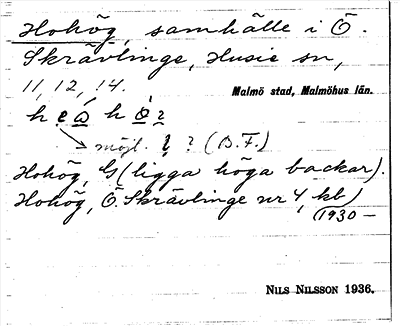 Hohög, samhälle i Ö.
Skrävlinge, Husie sn,
11, 12, 14.
Malmö stad, Malmöhus län.
möjl. ? (B.F.)
Hohög, G (ligga höga backar).
Hohög, Ö. Skrävlinge nr 4, kb)
(1930 —
NILS NILSSON 1936.